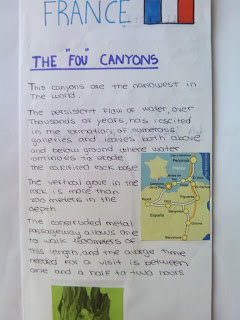 FRANCE
THE "FOU" CANYONS
This canyons are the narrowest in
the world.
The persistent flow of water, over
thousands of years, has iscited
in the formation of numerous
galleries and leaves both above
and below ground where water
continues to erode
the calcified rock base
The vertical gave in the
rock is more than
200 meters in the
depth
The construded metal
passageway allows one
to walk 1500meters of
this length, and the average time
needed for a visit is between
one and a half to two hours
Perpignan
España
Barcelona